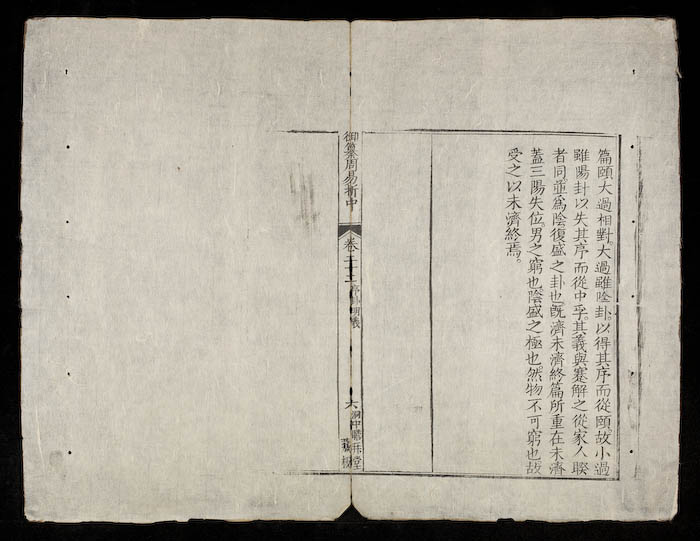 篇頤大過相對。大過雖陰卦。以得其序而從頤。故小過
雖陽卦以失其序而從中孚。其義與蹇解之從家人睽
者同。並爲陰復盛之卦也。旣濟未濟終篇所重在未濟
蓋三陽失位。男之窮也。陰盛之極也。然物不可窮也故
受之以未濟終焉。
御纂周易折中
卷二十三 序卦明義
六